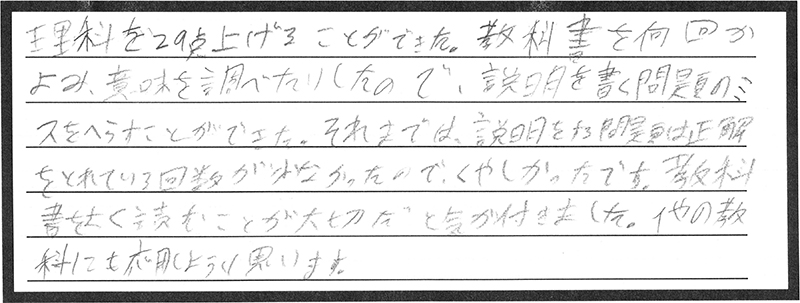 理科を29点上げることができた。教科書を何回か
よみ、意味を調べたりしたので、説明を書く問題のミ
スをへらすことができた。それまでは、説明をする問題は正解
をとれている回数が少なかったので、くやしかったです。教科
書をよく読むことが大切だと気が付きました。他の教
科にも応用しようと思います。